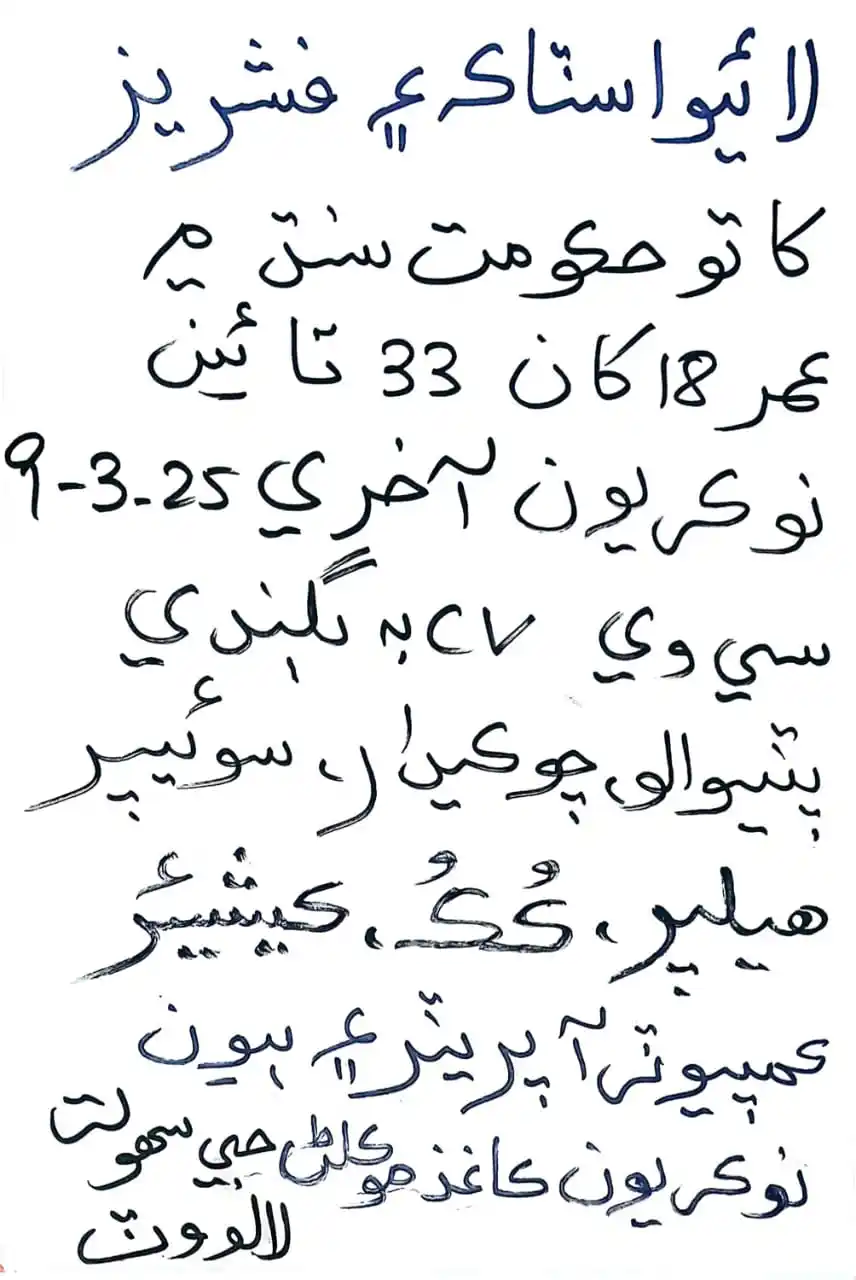 لائيو اسٽاڪ ۽ فشريز
کاتو حڪومت سنڌ ۾
عمر 18 کان 33 تائين
نوڪريون آخري 9-3-25
سي وي CV به گهندي
پٽيوالو، چوڪيدار، سوئيپر
هيلپر، ڪُڪُ، ڪيشيئر
ڪمپيوٽر آپريٽر ۽ ٻيون
نوڪريون ڪاغذ موڪلڻ جي سهولت